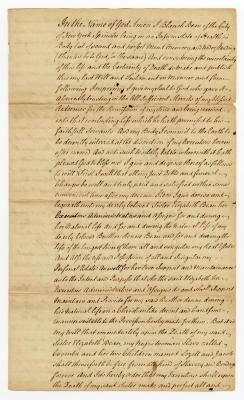 In the Name of God Amen I                Bean of the City
of New York Spinster being in an Infirm State of Health in
Body but of sound and perfect Mind Memory and Understanding
(thanks be to God for the same) and considering the uncertainty
of this life and the Certainty of Death do make and publish
this my last Will and Testament in Manner and form
following                I give my Soul to God who gave it
                in the All Sufficient Merits of my blessed
Redeemer for the                and an entrance
into that everlasting life which he hath promised to his
faithfull Servants And my Body I commit to the Earth to be
decently interred at the discretion of my Executors herein
after named And as to such Worldly Estate wherewith it hath
pleased God to bless me I give and dispose thereof as follows
to wit First I will that all my Just Debts and funeral
Charges be well and truly paid and satisfied within some
convenient time after my decease Item I give devise and
bequeath unto my dearly beloved Sister Elizabeth Bean her
Executors Administrators and Assigns for and during
her Natural life and for and during the Natural life of my
dearly beloved Brother                Bean and for and during the
life of the longest liver of them all and singular my Real Estate
And also the use and possession of all and singular my
Personal Estate                for her own Support and Maintenance
unto the Intent and purpose that she the said Elizabeth her
Executors Administrators and Assigns do and shall Support
Maintain and Provide for my said Brother          during
his Natural life in a                                and
                to the Provision hereby made for them And it is
my Will that immediately upon the Death of my said
Sister Elizabeth Bean, my Negro Woman Slave called
          and her two Children named          and Jacob
shall thenceforth be free from all kind of Slavery and Bondage
forever And I do hereby order that my Executors which upon
the Death of my said Sister make and perfect all and